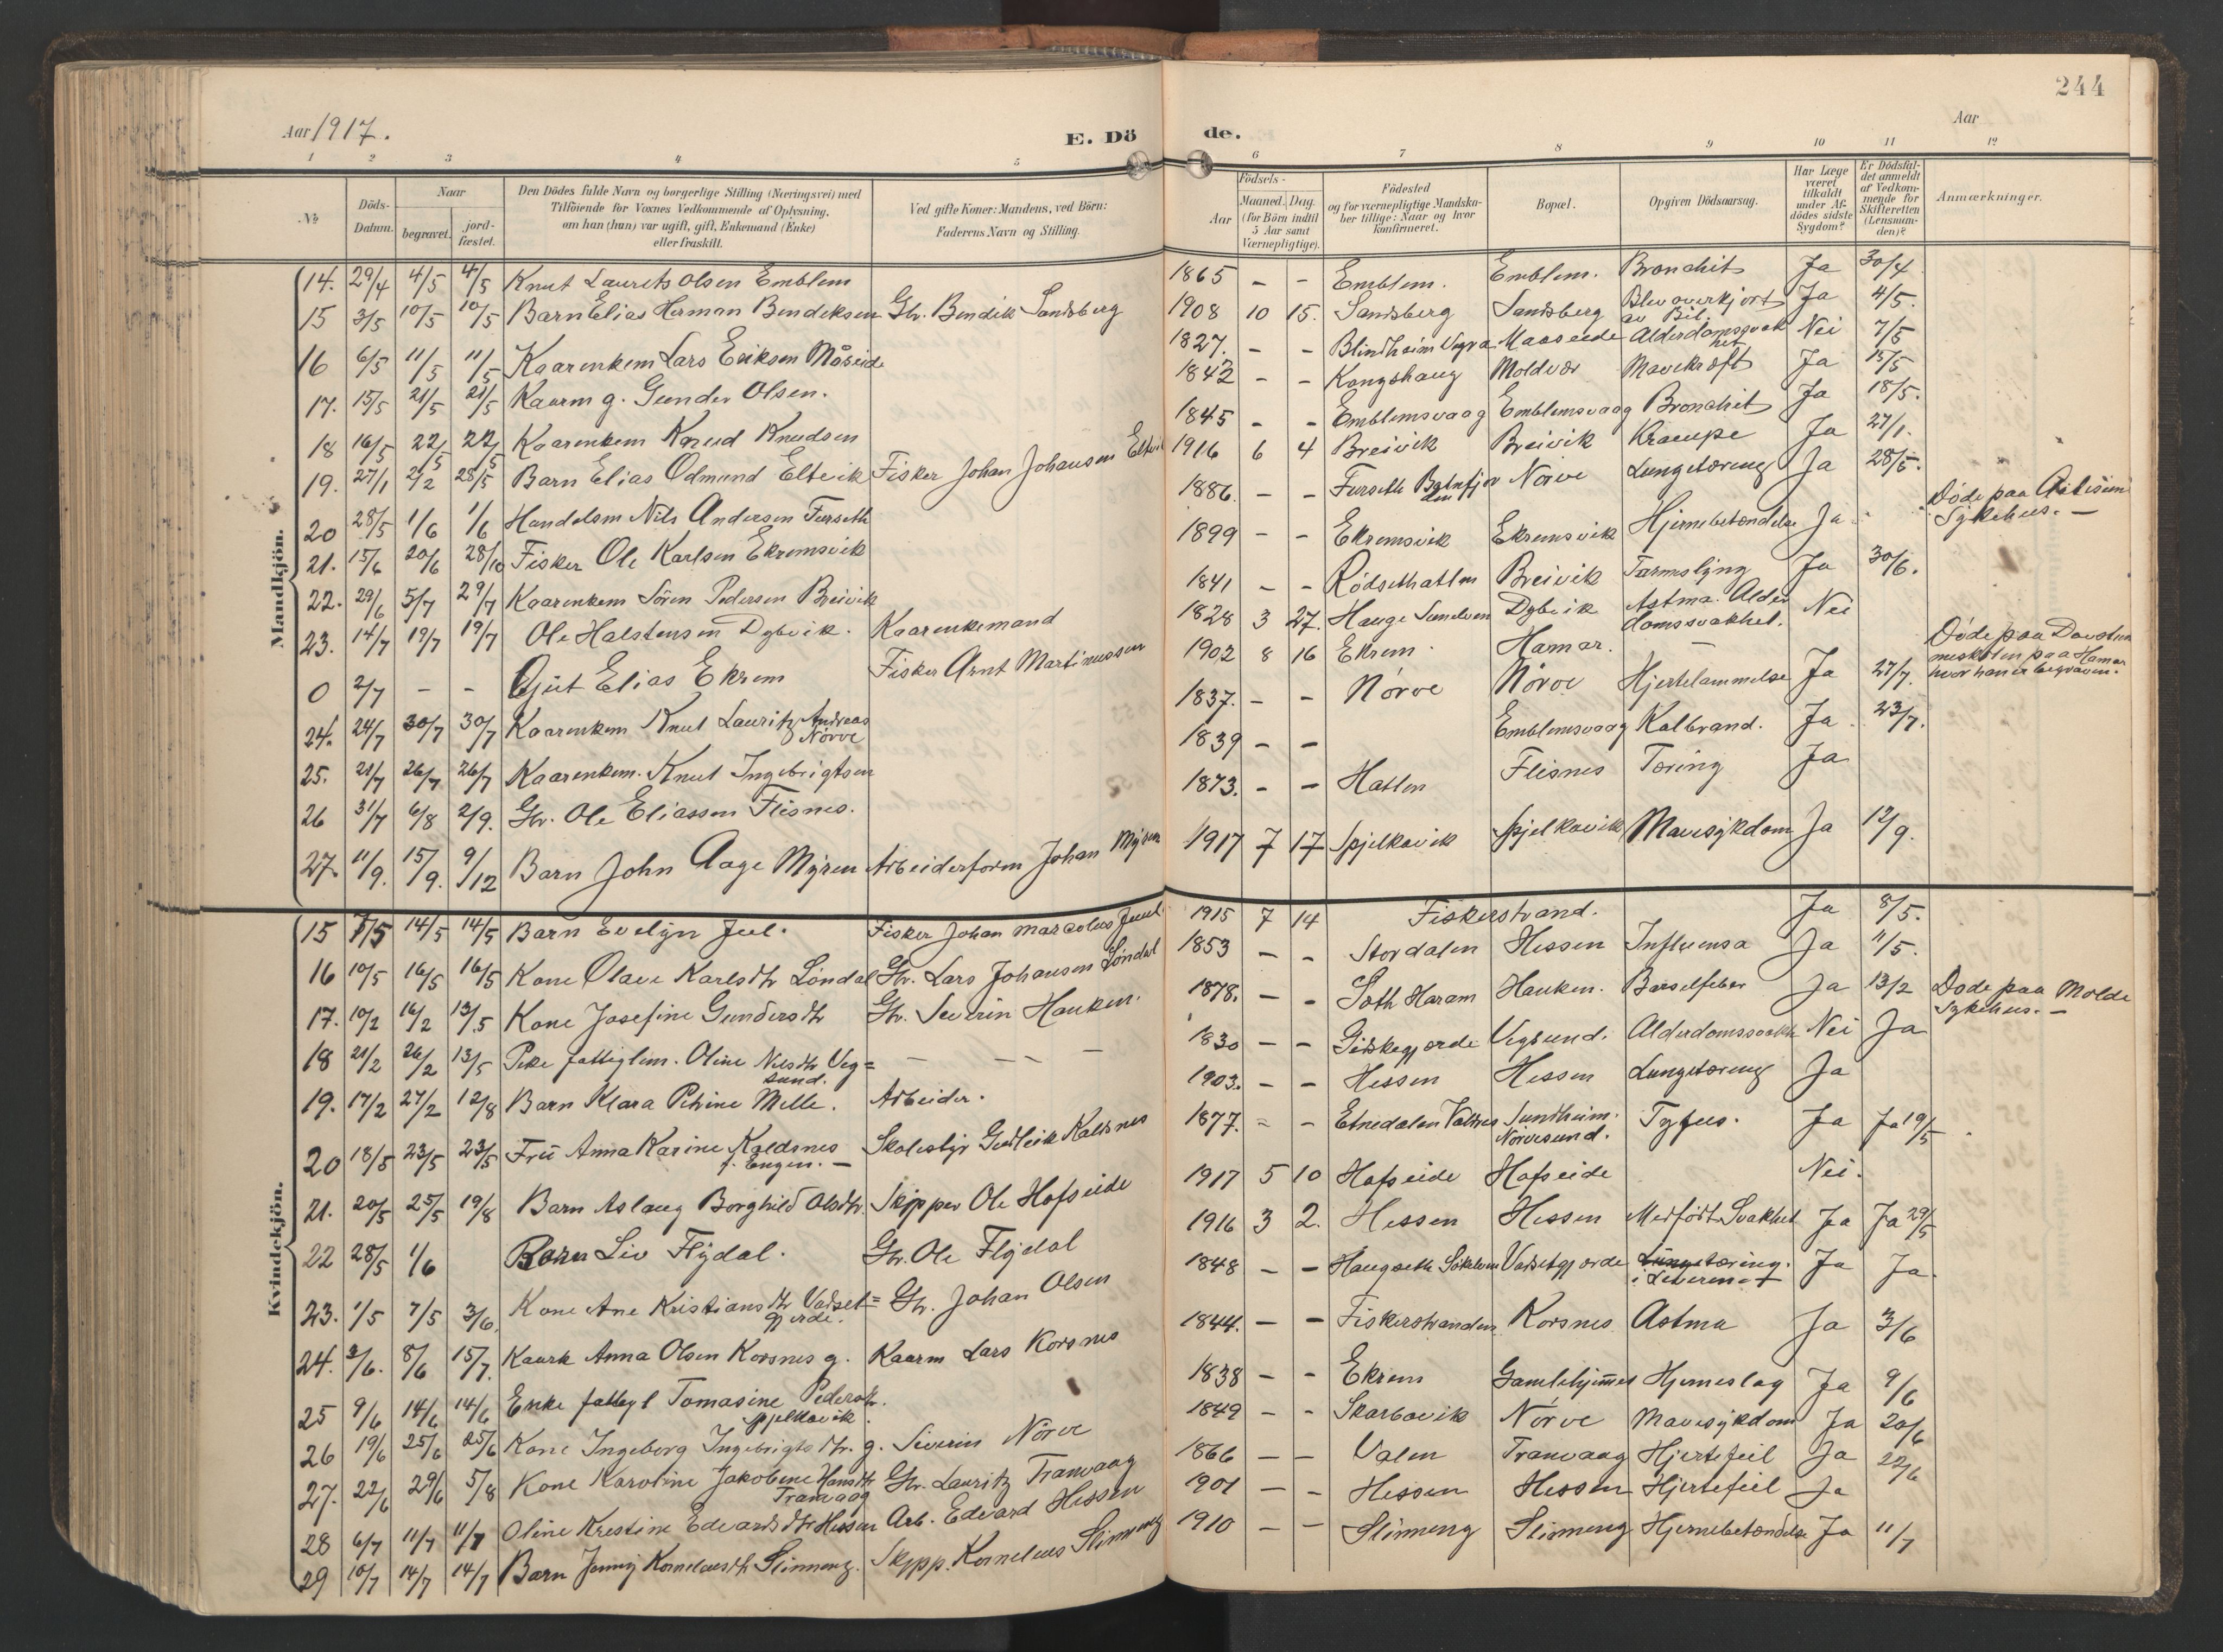 244
Aar 1917.
E. Dö de.
Aar
1 2 3 4 5 6 7 8 9 10 11 12
No
Döds-Datum.
Naar
begravet.
jord-fæstet.
Den Dödes fulde Navn og borgerlige Stilling (Næringsvei) med
Tilföiende for Voxnes Vedkommende af Oplysning,
om han (hun) var ugift, gift, Enkemand (Enke)
eller fraskilt.
Ved gifte Koner: Mandens, ved Börn:
Faderens Navn og Stilling.
Födsels-
Aar
Maaned. Dag.
(for Börn indtil
5 Aar samt
Værnepligtige).
Födested
og for værnepligtige Mandska-
ber tillige: Naar og hvor
konfirmeret.
Bopæl.
Opgiven Dödsaarsag.
Har Læge
været
tilkaldt
under Af-
dödes sidste
Sygdom?
Er Dödsfal-
det anmeldt
af Vedkom-
mende for
Skifteretten
(Lensman-
den)?
Anmærkninger.
Mandkjön.
14. 29/4 4/5 4/5 Knut Laurits Olsen Emblem 1865 - - Emblem. Emblem. Bronchit Ja 30/4
15 3/5 10/5 10/5 Barn Elias Herman Bendiksen Gbr. Bendik Sandsberg 1908 10 15. Sandsberg Sandsberg Blev overkjørt av Bil. Ja 4/5.
16 6/5 11/5 11/5 Kaarenkem Lars Eriksen Måseide 1827. - - Blindheim Vigra Maaseide Alderdomssvakhet Nei 7/5
17. 15/5 21/5 21/5 Kaarm g. Gunder Olsen. 1842 - - Kongshaug Moldvær Mavekræft Ja 15/5
18 16/5 22/5 22/5 Kaarenkem Knud Knudsen 1845 - - Emblemsvaag Emblemsvaag Bronchit Ja 18/5.
19. 27/1 2/2 28/5 Barn Elias Odmund Eltevik Fisker Johan Johansen Eltevik 1916 6 4 Breivik Breivik Krampe Ja 27/1.
20 28/5 1/6 1/6 Handelsm Nils Andersen Furseth 1886. - - Furseth Batnfjorden Nørve Lungetæring Ja 28/5.
21. 15/6 20/6 28/10 Fisker Ole Karlsen Ekremsvik 1899 - - Ekremsvik Ekremsvik Hjernebetændelse Ja Døde paa Sykehus. -
22. 29/6 5/7 29/7 Kaarenkem Sören Pedersen Breivik 1841 - - Rödsethatlen Breivik Tarmslyng Ja 30/6.
23. 14/7 19/7 19/7 Ole Halstensen Dybvik. Kaarenkemand 1828 3 27. Hauge Sunelven Dybvik Astma. Alderdomssvakhet. Nei
0 2/7 - - Gjut Elias Ekrem Fisker Arnt Martinussen 1902 8 16 Ekrem Hamar. - Døde paa Døvstummeskolen paa Hamar hvor han er begraven.
24. 24/7 30/7 30/7 Kaarenkem Knut Lauritz Andreas Nørve 1837. - - Nørve Nørve Hjertelammelse Ja 27/7.
25. 21/7 26/7 26/7 Kaarenkem. Knut Ingebrigtsen 1839 - - Emblemsvaag Kalbrand. Ja 23/7.
26 31/7 6/8 2/9. Gbr. Ole Eliassen Flisnes. 1873. - - Hatlen Flisnes Tæring Ja
27. 11/9. 15/9. 9/12 Barn John Aage Myren Arbeiderform Johan Myren 1917 7 17 Spjelkavik Spjelkavik Mavesykdom Ja 12/9.
Kvindekjön.
15 7/5 14/5 14/5 Barn Evelyn Juul. Fisker Johan Marcelius Juul 1915 7 14 Fiskerstrand. Ja 8/5.
16 10/5 16/5 16/5 Kone Olave Karlsdtr Löndal Gbr. Lars Johansen Löndal 1853 - - Stordalen Hessen Influensa Ja 11/5.
17. 10/2 16/2 13/5 Kone Josefine Gundersdtr Gbr. Severin Hauken. 1878. - - Søth Haram Hauken. Barselfeber Ja 13/2 Døde paa Molde Sykehus. -
18 21/2 26/2 13/5 Pike fattiglem. Oline Nilsdtr Vegsund. - - - 1830 - - Giskegjerde Vegsund. Alderdomssvakh Nei Ja
19. 17/2 27/2 12/8 Barn Klara Petrine Melle. Arbeider. 1903. - - Hessen Hessen Lungetæring Ja
20 18/5 23/5 23/5 Frü Anna Karine Kaldsnes f. Engen. - Skolestyr Gudleik Kaldsnes 1877. - - Etnedalen Valdres Sundheim. Nørvesund. Tyfus. Ja Ja 19/5
21. 20/5 25/5 19/8 Barn Aslaug Borghild Olsdtr. Skipper Ole Hofseide 1917 5 10 Hofseide Hofseide Nei.
22 28/5 1/6 Barn Liv Flydal. Gbr. Ole Flydal 1916 3 2. Hessen Hessen Medfødt Svakhet Ja Ja 29/5
23. 1/5 7/5 3/6. Kone Ane Kristiansdtr Vadset=gjerde. Gbr. Johan Olsen 1848 - - Haugseth Søkelven Vadsetgjerde Lungetæring. i Leveren Ja Ja.
24. 3/6. 8/6 15/7. Kaark Anna Olsen Korsnes g. Kaarm Lars Korsnes 1844. - - Fiskerstranden Korsnes Astma Ja 3/6
25 9/6 14/6 14/6 Enke fattigl Tomasine Pedersdtr. Spjelkavik. 1838 - - Ekrem Gamlehjemmet Hjerneslag Ja 9/6
26 19/6 25/6 25/6 Kone Ingeborg Ingebrigtsdtr. g. Severin Nørve 1849 - - Skarbøvik Nørve Mavesykdom Ja 20/6
27. 22/6 29/6 5/8 Kone Karoline Jakobine Hansdtr Tranvaag Gbr. Lauritz Tranvaag 1866 - - Valen Tranvaag Hjertefeil Ja 22/6
28 6/7 11/7 11/7 Oline Kristine Edvardsdtr Hessen Arb. Edvard Hessen 1901 - - Hessen Hessen Hjertefeil Ja
29 10/7 14/7 14/7 Barn Jenny Korneliusdtr Slinneng. Skipp. Kornelius Slinneng 1910 - - Slinneng Slinneng Hjernebetændelse Ja 11/7